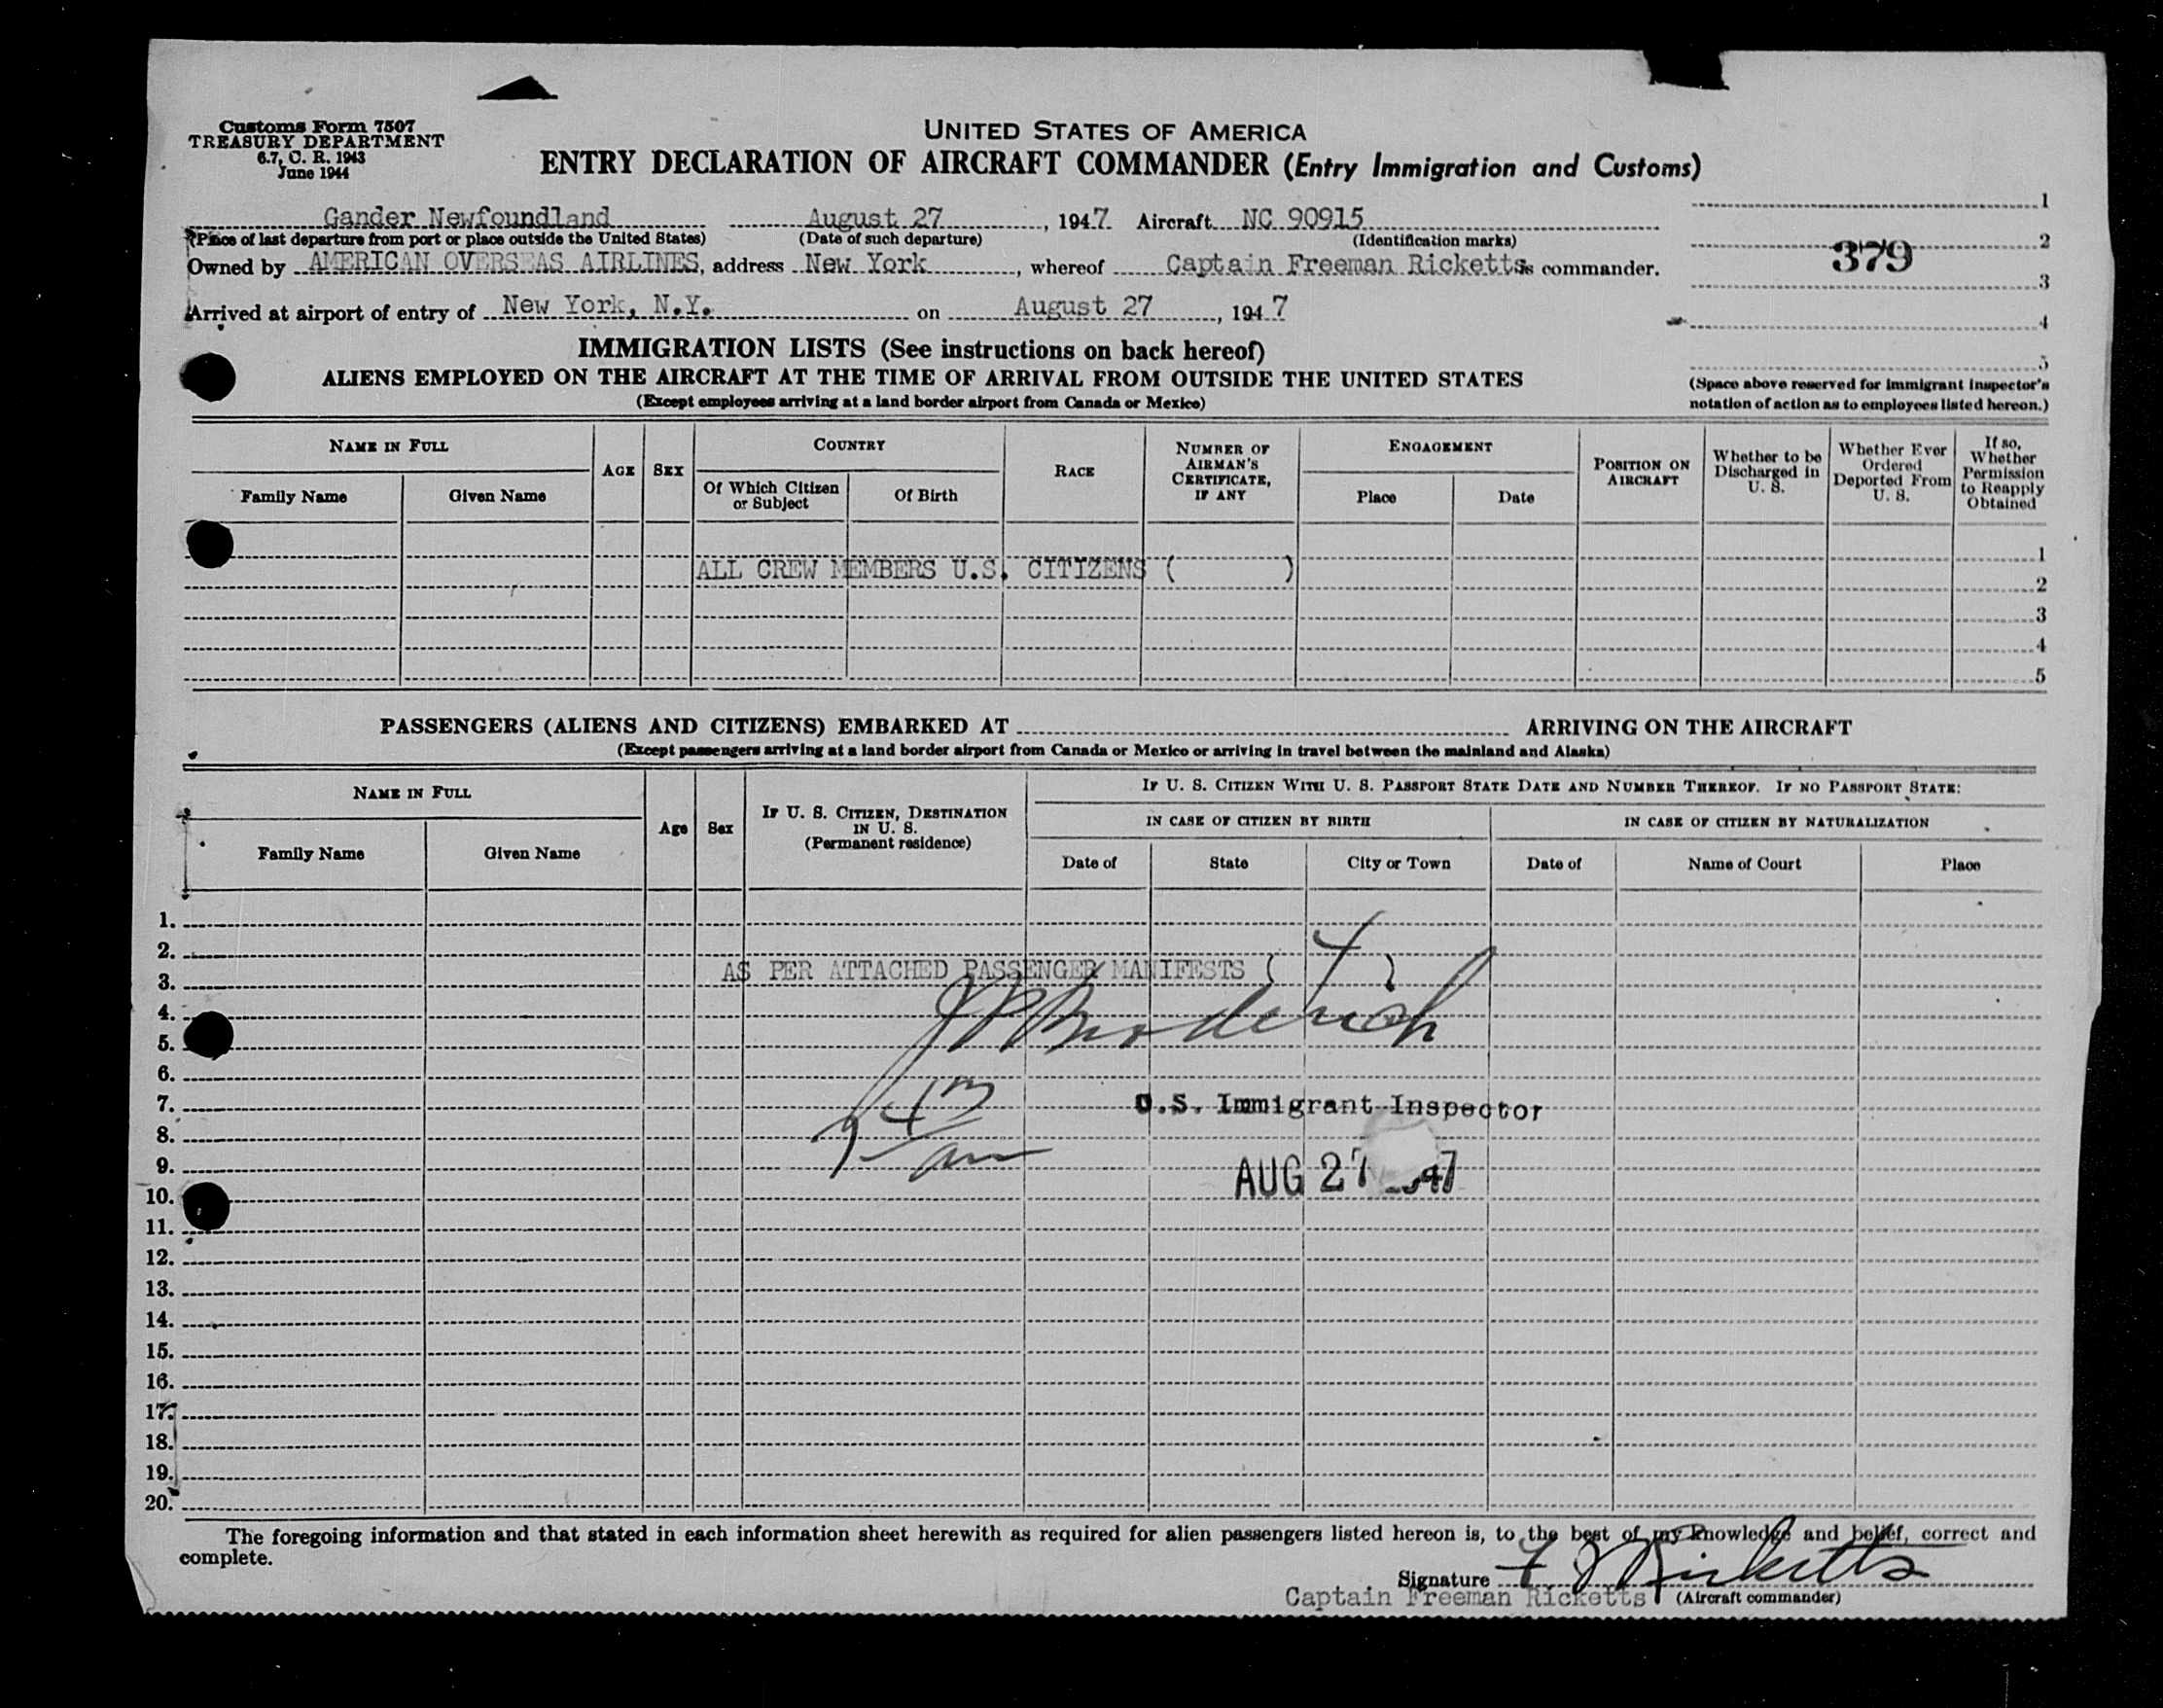 Customs Form 7507
TREASURY DEPARTMENT
6.7, C. R. 1943
June 1944
UNITED STATES OF AMERICA
ENTRY DECLARATION OF AIRCRAFT COMMANDER (Entry Immigration and Customs)
Gander Newfoundland August 27, 1947 Aircraft NC 90915
(Place of last departure from port or place outside the United States) (Date of such departure) (Identification marks)
Owned by AMERICAN OVERSEAS AIRLINES, address New York, whereof Captain Freeman Ricketts is commander.
Arrived at airport of entry of New York, N.Y. on August 27, 1947
1
2
379
3
4
5
(Space above reserved for immigrant inspector's
notation of action as to employees listed hereon.)
IMMIGRATION LISTS (See instructions on back hereof)
ALIENS EMPLOYED ON THE AIRCRAFT AT THE TIME OF ARRIVAL FROM OUTSIDE THE UNITED STATES
(Except employees arriving at a land border airport from Canada or Mexico)
NAME IN FULL
Family Name Given Name
AGE SEX
COUNTRY
Of Which Citizen or Subject Of Birth
RACE
NUMBER OF AIRMAN'S CERTIFICATE, IF ANY
ENGAGEMENT
Place Date
POSITION ON AIRCRAFT
Whether to be Discharged in U. S.
Whether Ever Ordered Deported From U. S.
If so, Whether Permission to Reapply Obtained
1
ALL CREW MEMBERS U.S. CITIZENS ( )
2
3
4
5
PASSENGERS (ALIENS AND CITIZENS) EMBARKED AT ARRIVING ON THE AIRCRAFT
(Except passengers arriving at a land border airport from Canada or Mexico or arriving in travel between the mainland and Alaska)
NAME IN FULL
Family Name Given Name
Age Sex
IF U. S. CITIZEN, DESTINATION IN U. S.
(Permanent residence)
IF U. S. CITIZEN WITH U. S. PASSPORT STATE DATE AND NUMBER THEREOF. IF NO PASSPORT STATE:
IN CASE OF CITIZEN BY BIRTH IN CASE OF CITIZEN BY NATURALIZATION
Date of State City or Town Date of Name of Court Place
1.
2.
AS PER ATTACHED PASSENGER MANIFESTS ( )
3.
4.
5.
6.
7.
U.S. Immigrant Inspector
8.
9.
AUG 27 1947
10.
11.
12.
13.
14.
15.
16.
17.
18.
19.
20.
The foregoing information and that stated in each information sheet herewith as required for alien passengers listed hereon is, to the best of my knowledge and belief, correct and
complete.
Signature F J Ricketts
Captain Freeman Ricketts (Aircraft commander)